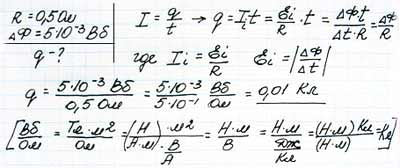 R = 0,50м
ΔФ = 5·10⁻³ Вб
q - ?
I = q/t → q = Iᵢt = Ɛi/R · t = ΔФt/Δt·R = ΔФ/R
где Ii = Ɛi/R Ɛi = |ΔФ/Δt|
q = 5·10⁻³ Вб/0,5 Ом = 5·10⁻³/5·10⁻¹ Вб/Ом = 0,01 Кл
[Вб/Ом = Тл·м²/Ом = (Н/А·м)·м²/(В/А) = Н·м/В = Н·м/(Дж/Кл) = (Н·м)Кл/(Н·м) = Кл]